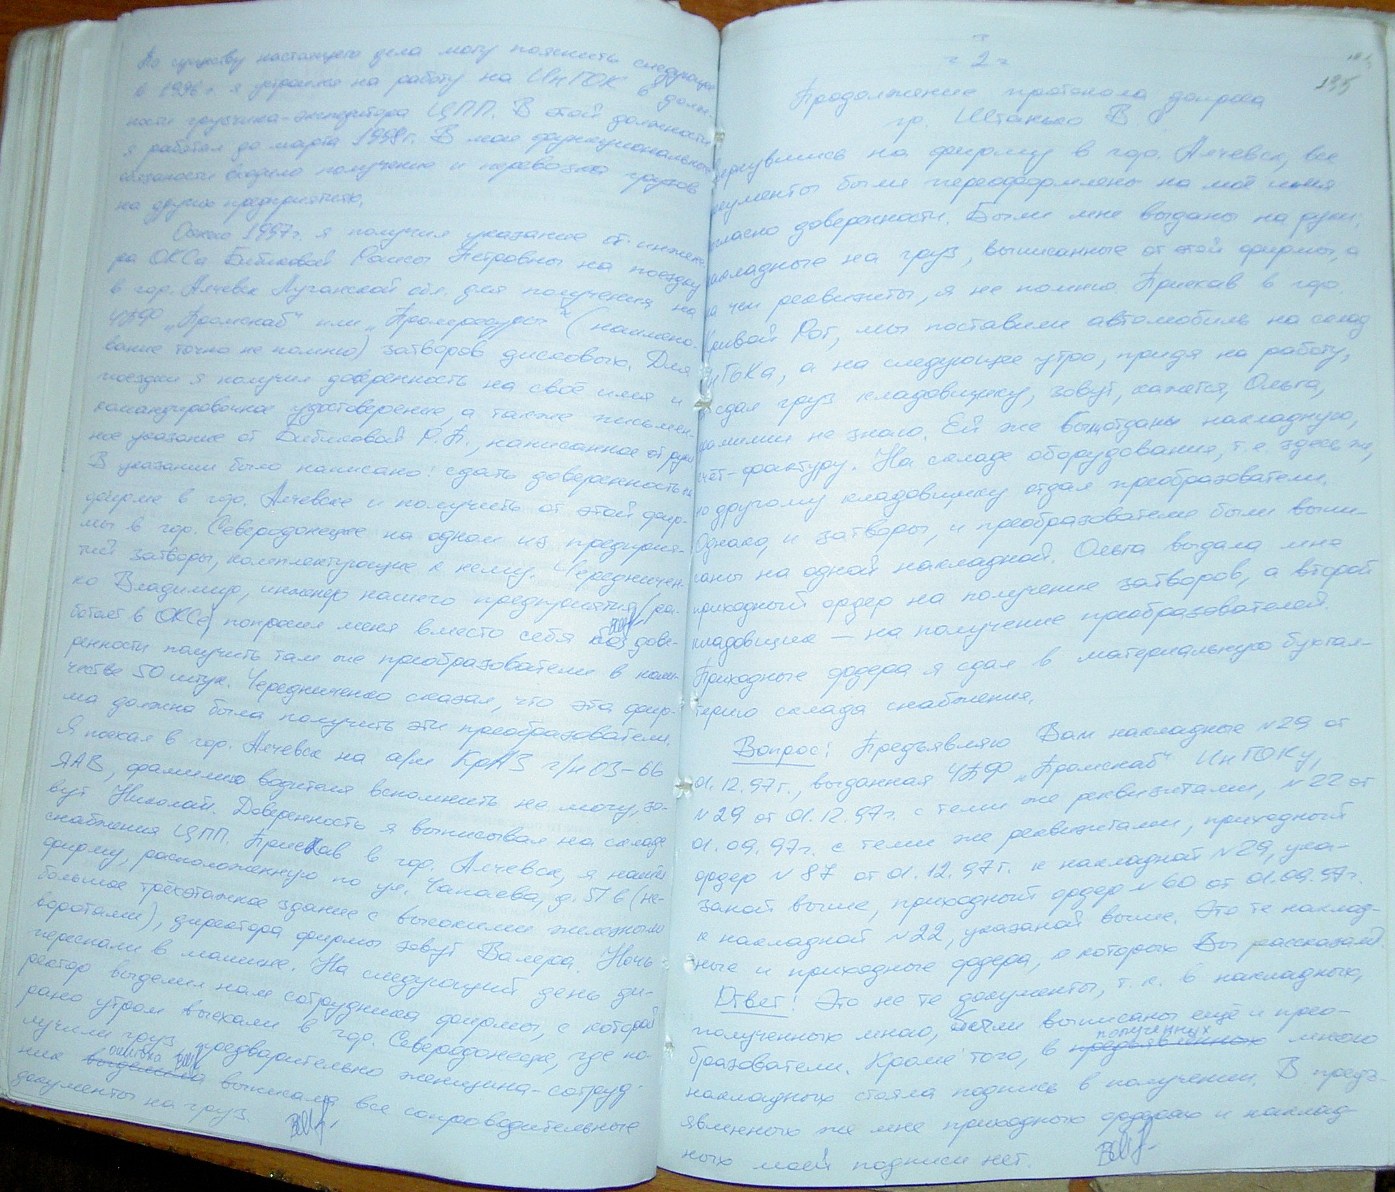 По существу настоящего дела могу пояснить следующее:
в 1996г. я устроился на работу на ИнГОК в долж-
ности грузчика-экспедитора ЦПП. В этой должности
я работал до марта 1998г. В мои функциональные
обязаности входило получение и перевозка грузов
на других предприятиях.
Осенью 1997г. я получил указание от инжене-
ра ОКСа Бибиковой Раисы Петровны на поездку
в гор. Алчевск Луганской обл. для получения на
ЧПФ „Промснаб" или „Промресурсы" (наимено-
вание точно не помню) затворов дисковых. Для
поездки я получил доверенность на своё имя и
командировочное удостоверение, а также письмен-
ное указание от Бибиковой Р.П., написанное от руки
В указании было написано: сдать доверенность в
фирме в гор. Алчевске и получить от этой фир-
мы в гор. Северодонецке на одном из предприя-
тий затворы, комплектующие к нему. Чередничен-
ко Владимир, инженер нашего предприятия (ра-
ботает в ОКСе) попросил меня вместо себя по дове-
ренности получить там же преобразователи в коли-
честве 50 штук. Чередниченко сказал, что эта фир-
ма должна была получить эти преобразователи.
Я поехал в гор. Алчевск на а/м КрАЗ г/н 03-66
ЯАВ, фамилию водителя вспомнить не могу, зо-
вут Николай. Доверенность я выписывал на складе
снабжения ЦПП. Приехав в гор. Алчевск, я нашёл
фирму, расположенную по ул. Чапаева, д. 51б (не-
большое трёхэтажное здание с высокими железными
воротами), директора фирмы зовут Валера. Ночь
переспали в машине. На следующий день ди-
ректор выделил нам сотрудника фирмы, с которой
рано утром выехали в гор. Северодонецк, где по-
лучили груз, предварительно женщина-сотруд-
ошибка
ник выписала все сопроводительные
документы на груз.
- 2 -
195
Продолжение протокола допроса
гр. Штанько В
вернувшись на фирму в гор. Алчевск, все
документы были переоформлены на моё имя
согласно доверенности. Были мне выданы на руки:
накладные на груз, выписанные от этой фирмы, а
на чьи реквизиты, я не помню. Приехав в гор.
Кривой Рог, мы поставили автомобиль на склад
ИнГОКа, а на следующее утро, придя на работу,
я сдал груз кладовщику, зовут, кажется, Ольга,
фамилии не знаю. Ей же были отданы накладную,
счёт-фактуру. На складе оборудования, т.е. здесь же,
но другому кладовщику отдал преобразователи.
Однако, и затворы, и преобразователи были выпи-
саны на одной накладной. Ольга выдала мне
приходный ордер на получение затворов, а второй
кладовщик — на получение преобразователей.
Приходные ордера я сдал в материальную бухгал-
терию склада снабжения.
Вопрос: Предъявляю Вам накладные №29 от
01.12.97г., выданная ЧПФ „Промснаб" ИнГОКу,
№29 от 01.12.97г. с теми же реквизитами, №22 от
01.09.97г. с теми же реквизитами, приходный
ордер №87 от 01.12.97г. к накладной №29, ука-
заной выше, приходный ордер №60 от 01.09.97г.
к накладной №22, указаной выше. Это те наклад-
ные и приходные ордера, о которых Вы рассказали.
Ответ: Это не те документы, т.к. в накладных,
полученных мною, были выписаны ещё и прео-
бразователи. Кроме того, в предъявленных полученных мною
накладных стояла подпись в получении. В предъ-
явленных же мне приходных ордерах и наклад-
ных моей подписи нет.